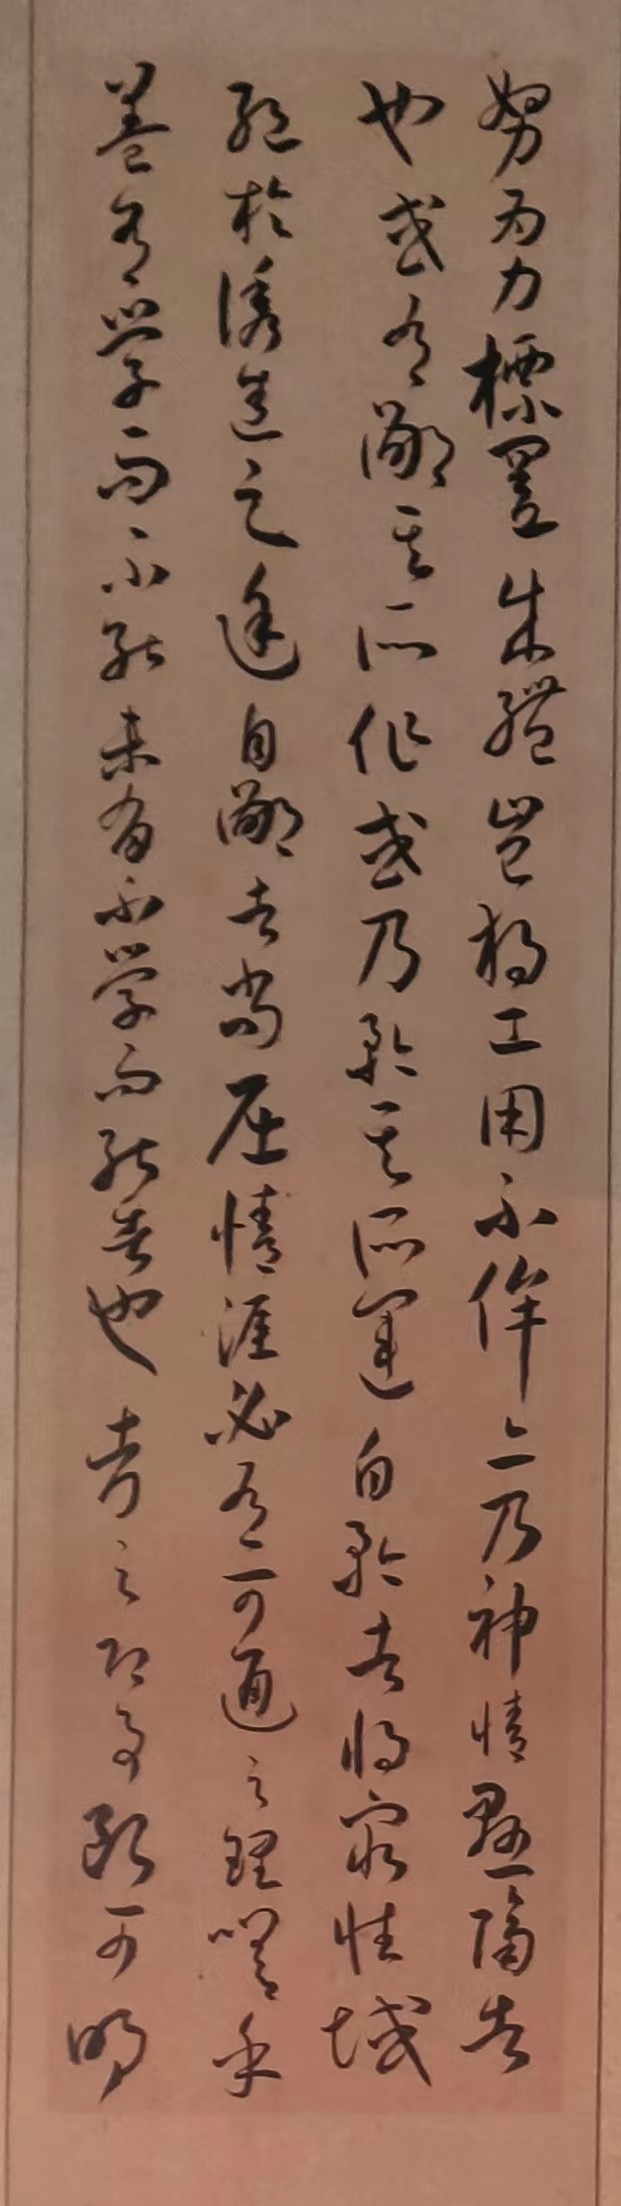 努為力標置成體豈獨工用不侔亦乃神情懸隔者
也或有鄙其所作或乃矜其所運自矜者將窮性域
絕於誘進之途自鄙者尚屈情涯必有可通之理嗟乎
蓋有學而不能未有不學而能者也考之即事斷可明